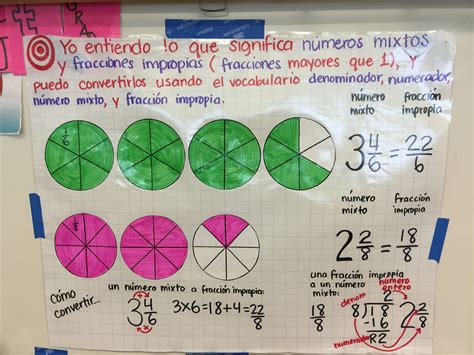 Yo entiendo lo que significa números mixtos
y fracciones impropias (fracciones mayores que 1), y
puedo convertirlos usando el vocabulario denominador, numerador,
número mixto, y fracción impropia.
número mixto
fracción impropia
1/6
3 4/6 = 22/6
número mixto
fracción impropia
1/8
2 2/8 = 18/8
Cómo convertir...
un número mixto a fracción impropia:
3 4/6
+
x
3x6=18+4=22/8
una fracción impropia
a un número
mixto:
número entero
18/8
denom
2
8)18
-16
R2
numerador
2 2/8